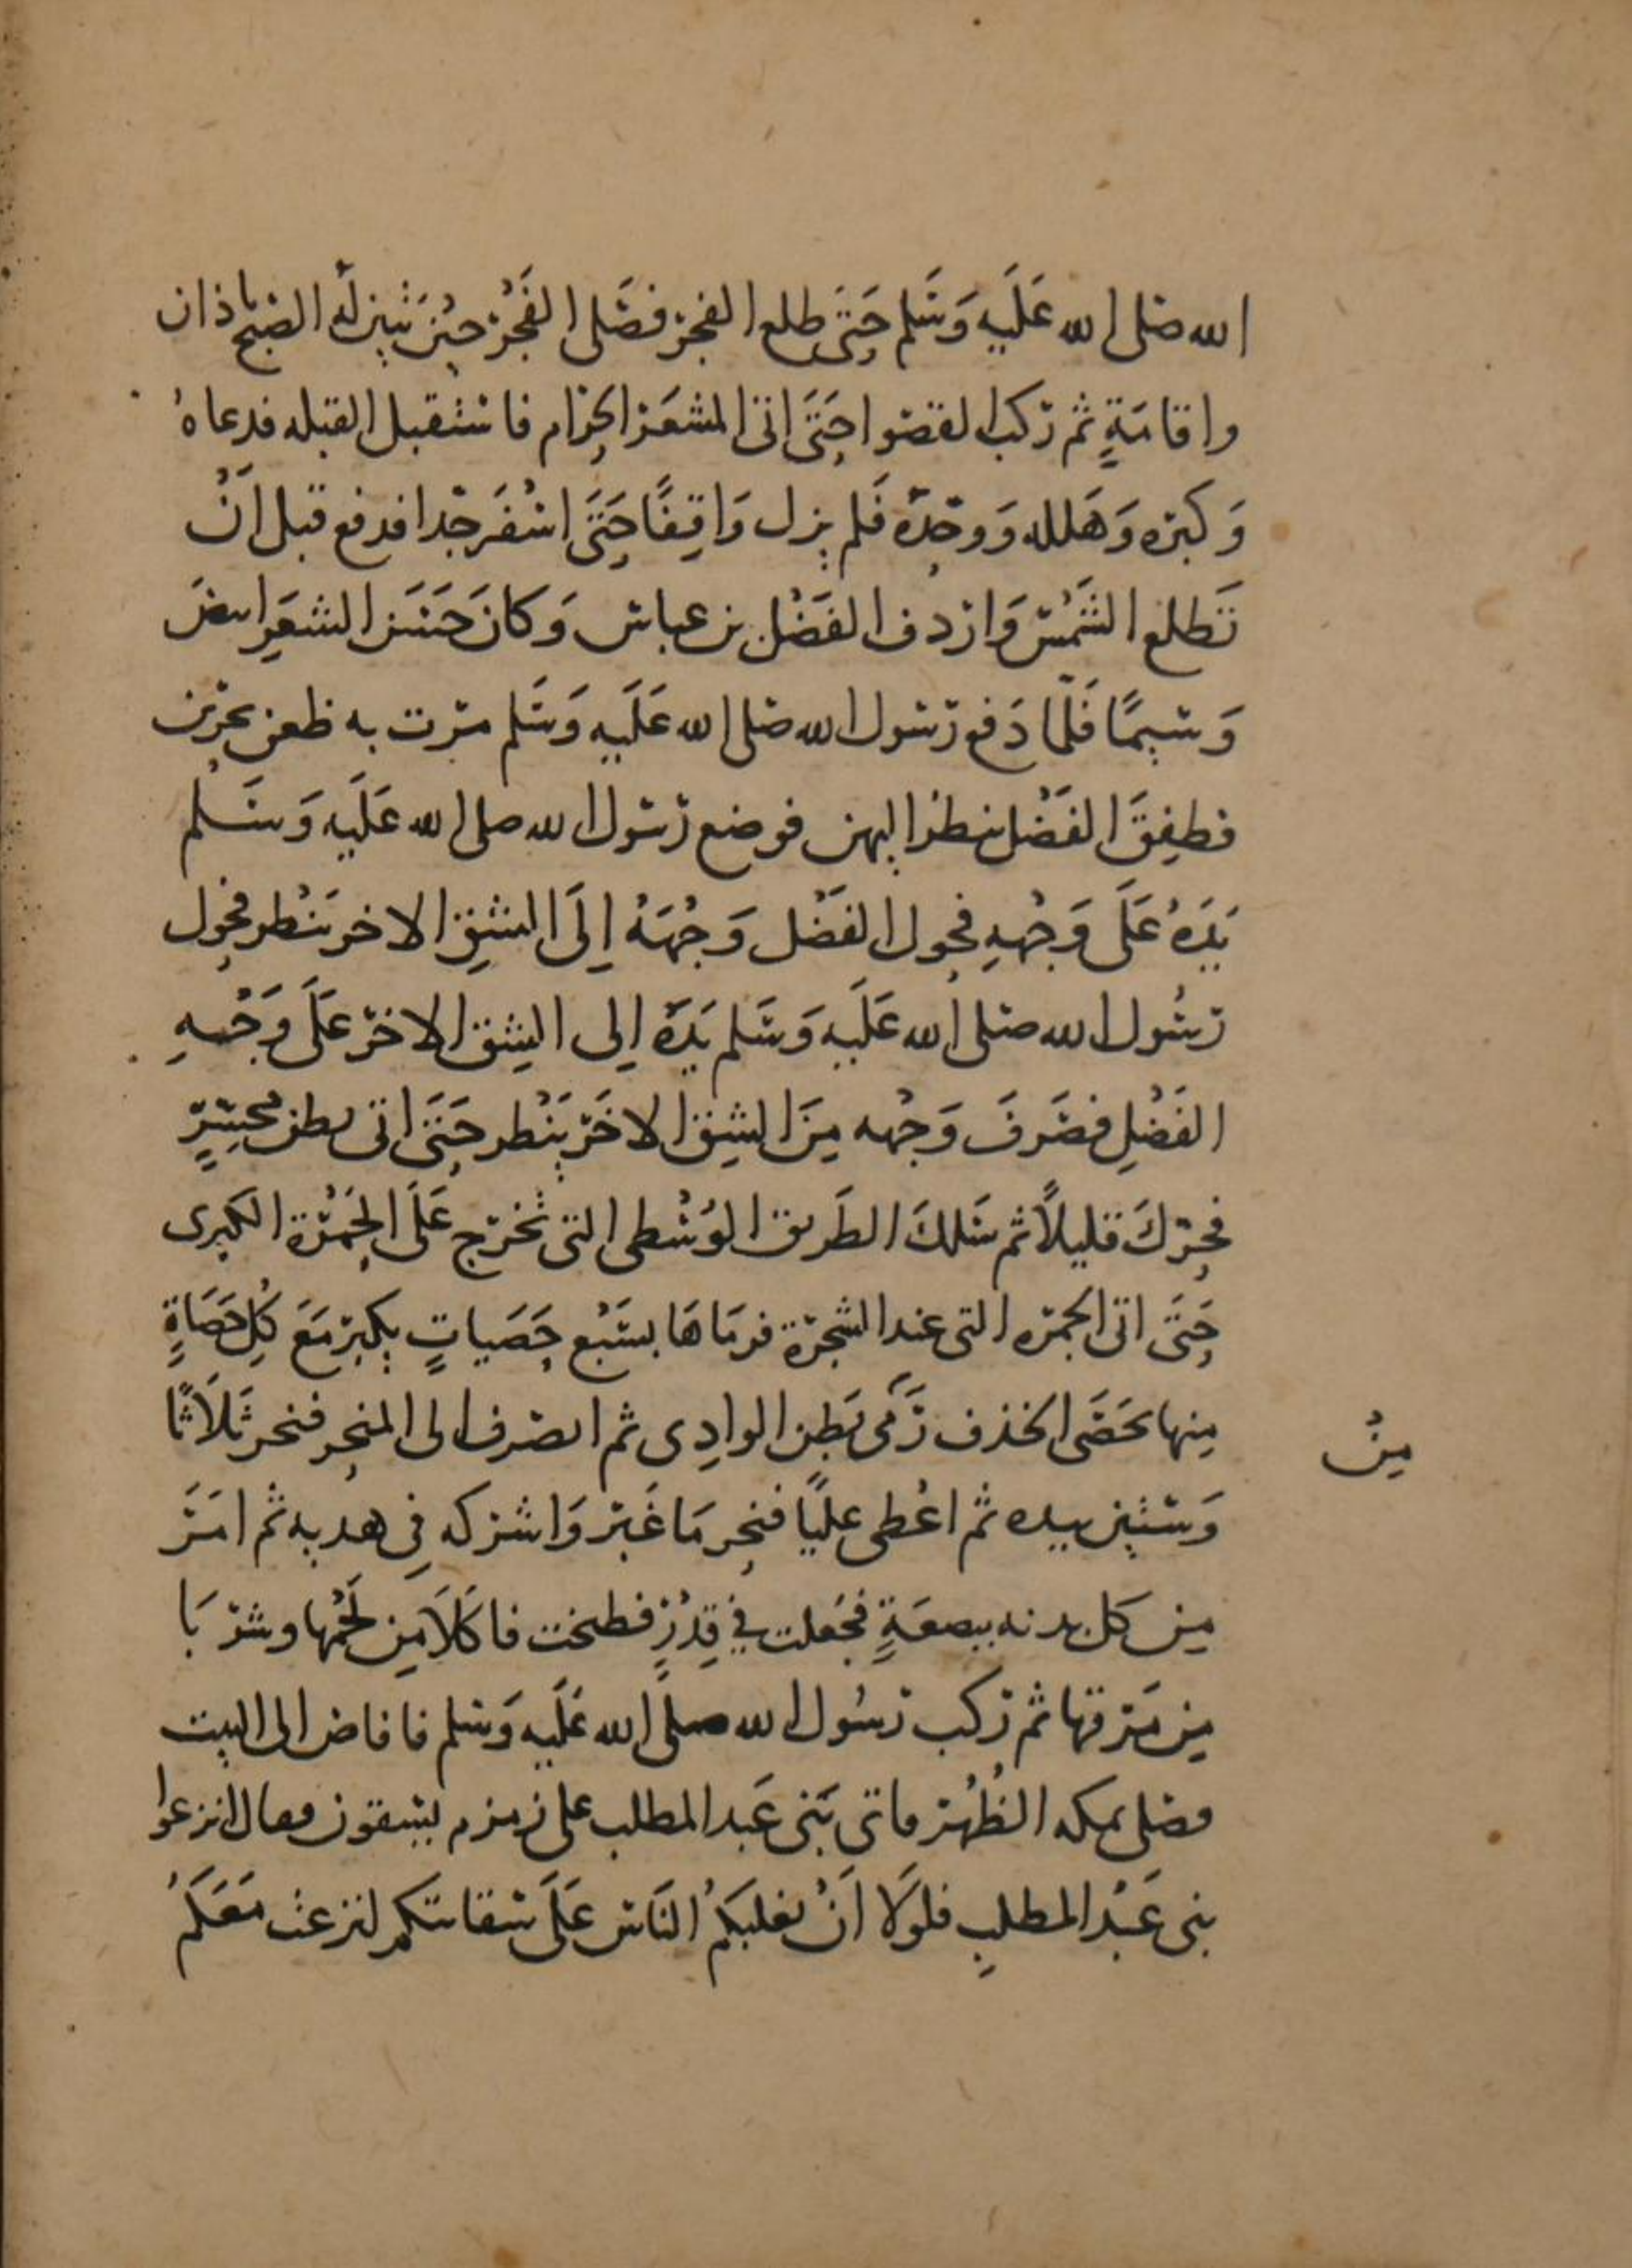 الله صلى الله عَلَيهِ وَسَلم حَتَّى طلع الفجر فصَلى الفَجْر حِيْنَ تبين لَهُ الصبح باذان
واقامَةٍ ثم ركب القصوا حَتَّى اتى المشعَر الحرَام فاستقبل القبله فدعاهُ
وَكبره وَهَلله وَوحدَهُ فَلم يزل وَاقِفًا حَتَّى اسْفَر جدا فدفع قبل اَنْ
تَطلع الشَمْسُ وَاردف الفَضْل بن عباس وَكانَ حَسَن الشعَرِ ابيض
وَسيمًا فَلَمّا دَفع رَسُول الله صلى الله عَلَيهِ وَسَلم مرت به ظعن يجرين
فطفِقَ الفَضْل ينظر اليهن فوضع رَسُول الله صلى الله عَلَيه وَسَلم
يَدَهُ عَلَى وَجْهِهِ فحول الفَضْل وَجْهَهُ اِلَى الشِق الاخر يَنْظر فحول
رَسُول الله صلى الله عَلَيه وَسَلم يَدَهُ اِلى الشِق الاخر عَلَى وَجْهِهِ
الفَضْلِ فصَرفَ وَجْهه مِنَ الشِق الاخَر يَنْظر حَتَّى اتى بطن مُحَسِّرٍ
فحركَ قليلاً ثم سَلكَ الطَريق الوُسْطى التى تخرج عَلَى الجَمْرَة الكبرى
حَتَّى اتى الجمرَه التى عند الشجرَة فرمَاهَا بسَبْع حَصَياتٍ يكبر مَعَ كُلِ حَصَاةٍ
مِنها حَصَى الخذف رَمى بَطِن الوادِى ثم انصرف الى المنحر فنحر ثَلَاثًا
مِنْ
وَستين بيده ثم اعْطى عليًا فنحر مَا غَبَر وَاشركه فِى هديه ثم امَرَ
مِن كل بدنه ببضعَةٍ فجعلت في قِدْرٍ فطبخت فاكَلَا مِن لَحْمها وشرَبَا
مِن مَرقها ثم ركب رَسُول الله صلى الله عَلَيه وَسَلم فافاض الى البيت
فصلى بمكه الظُهْر فاتى بَنى عَبد المطلب على زمزم يسقون فقال انزعوا
بنى عَبْد المطلبِ فلولَا اَنْ يغلبَكمُ النَاس عَلَى سقايتكم لنزعت مَعَكمُ